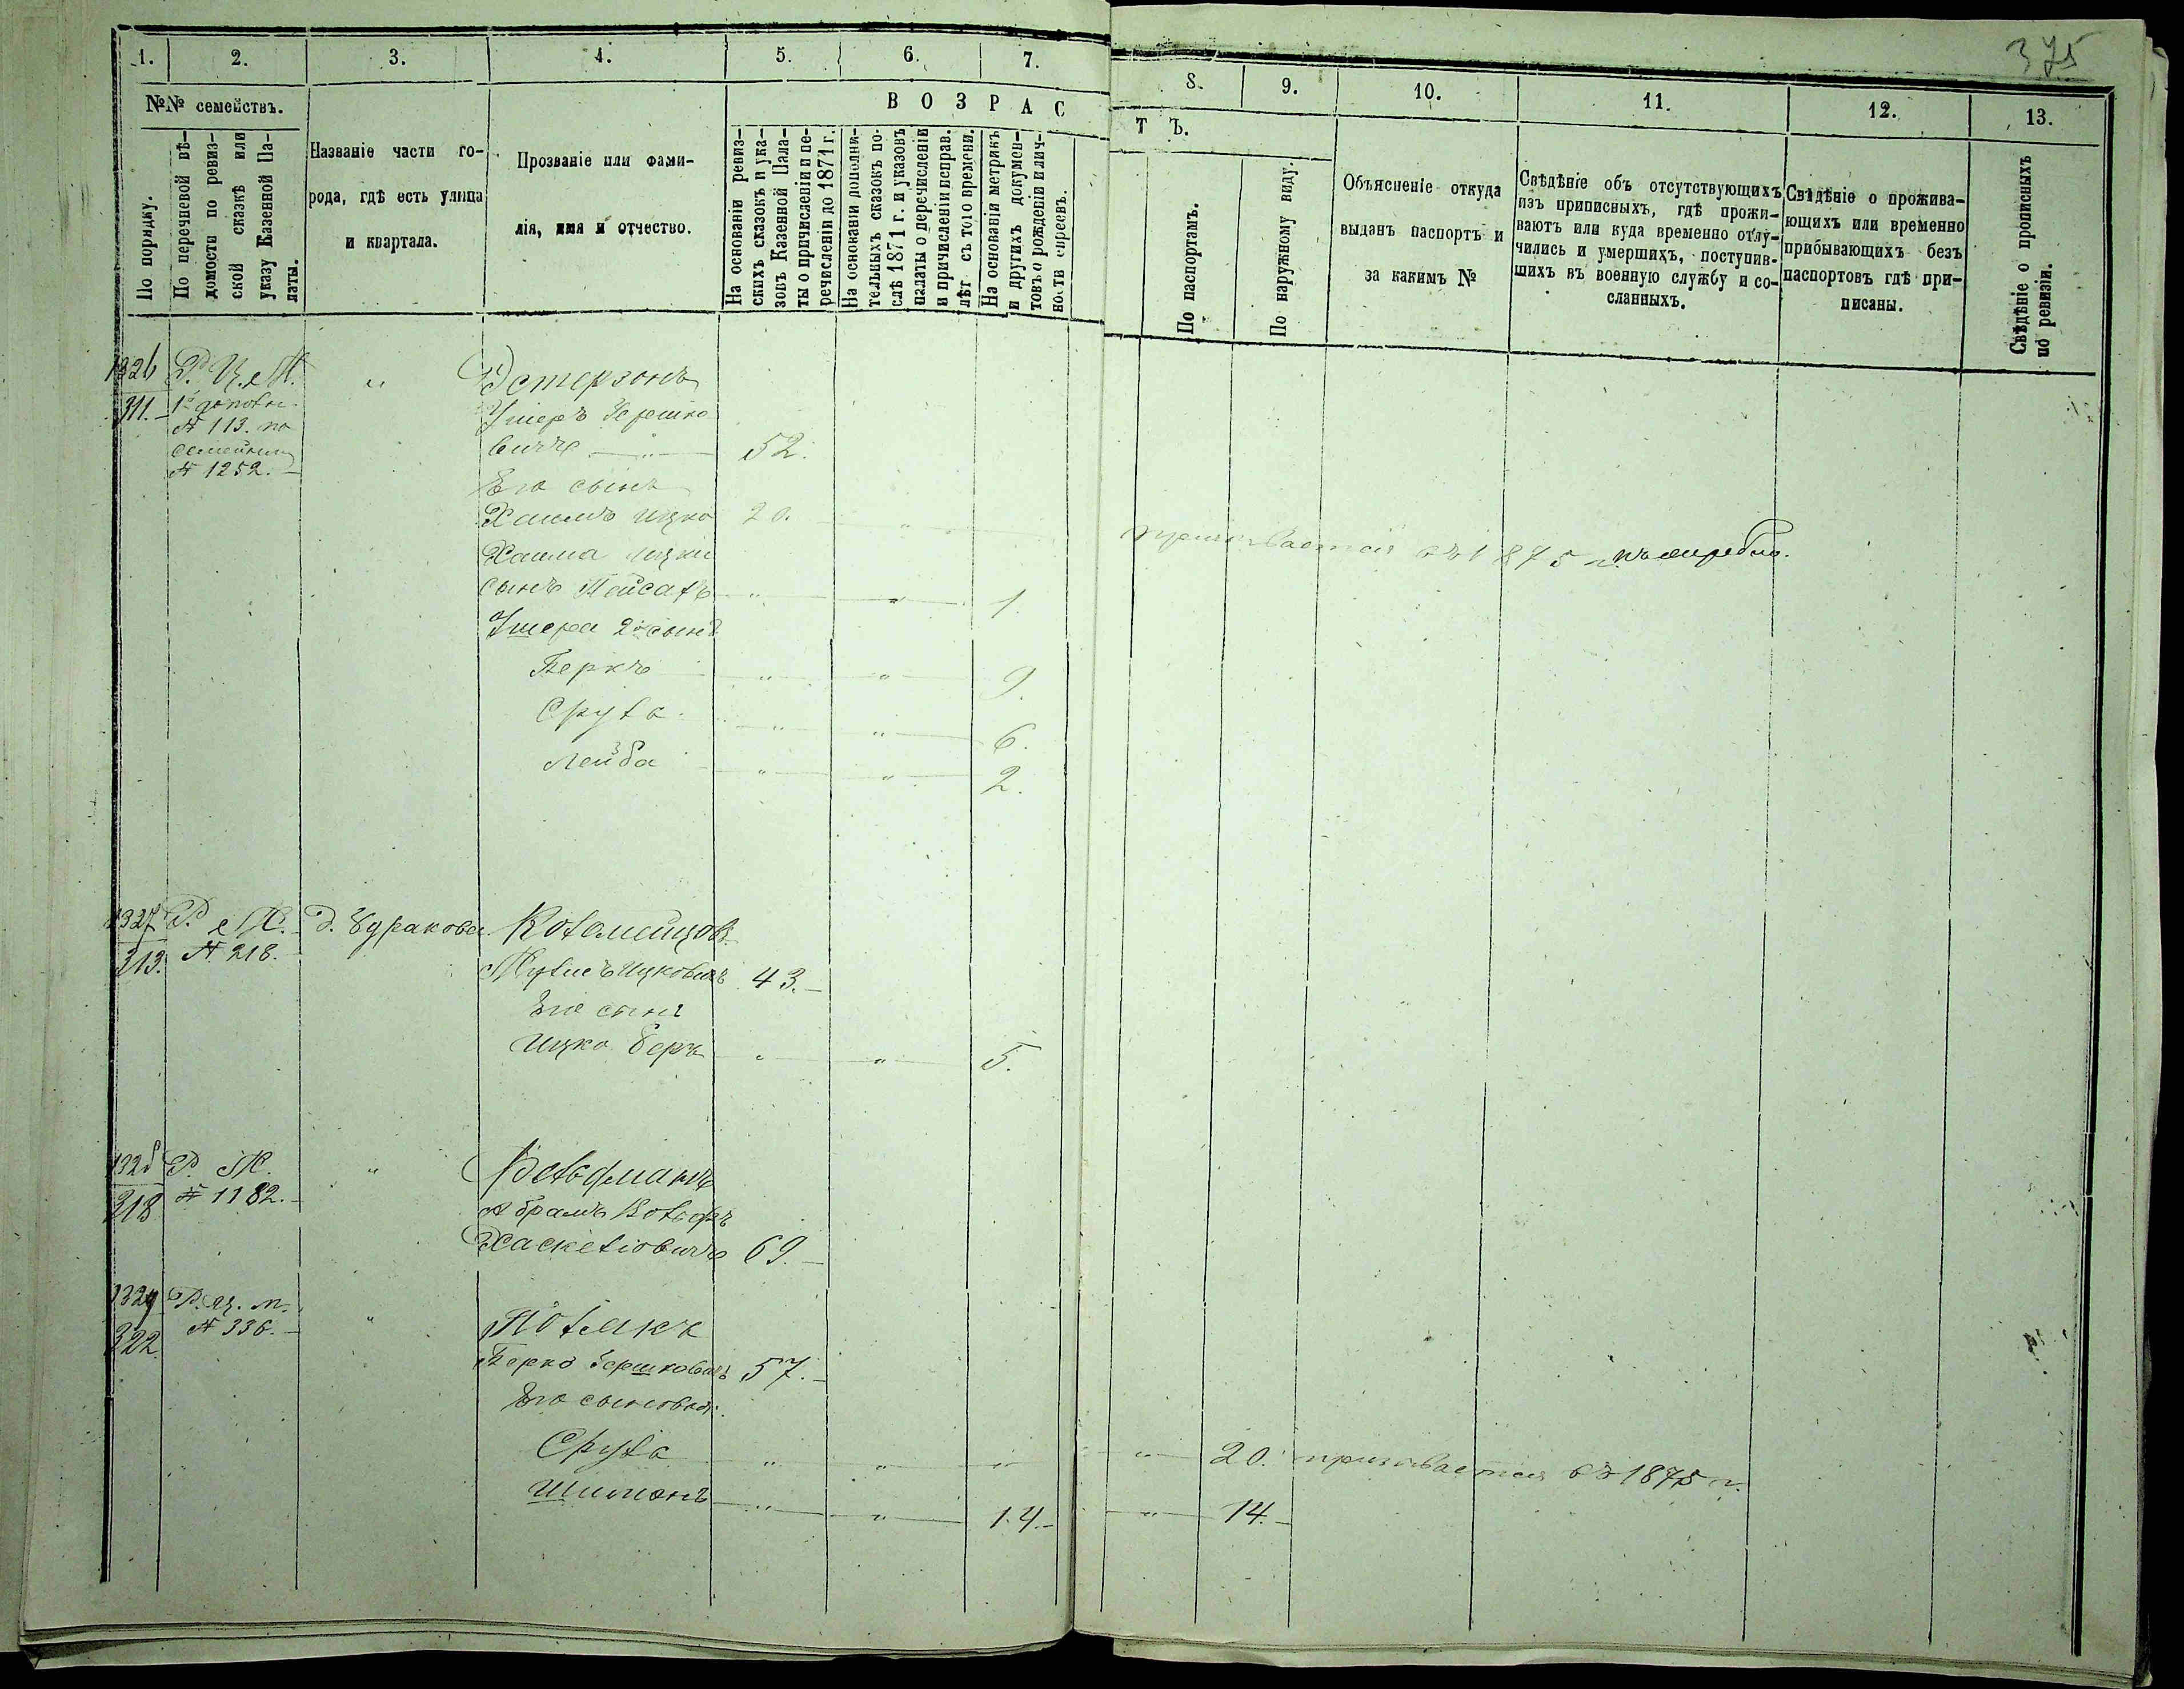 375
1. 2. 3. 4. 5. 6. 7. 8. 9. 10. 11. 12. 13.
№№ семействъ.
По порядку.
По перечневой вѣ-
домости по ревиз-
ской сказкѣ или
указу Казенной Па-
латы.
Названіе части го-
рода, гдѣ есть улица
и квартала.
Прозваніе или фами-
лія, имя и отчество.
ВОЗРАСТЪ.
На основаніи ревиз-
скихъ сказокъ и ука-
зовъ Казенной Пала-
ты о причисленіи и пе-
речисленіи до 1871 г.
На основаніи дополни-
тельныхъ сказокъ по-
слѣ 1871 г. и указовъ
палаты о перечисленіи
и причисленіи исправ.
лѣт съ того времени.
На основаніи метрикъ
и другихъ докумен-
товъ о рожденіи и лич-
ности евреевъ.
По паспортамъ.
По наружному виду.
Объясненіе откуда
выданъ паспортъ и
за какимъ №
Свѣдѣніе объ отсутствующихъ
изъ приписныхъ, гдѣ прожи-
ваютъ или куда временно отлу-
чились и умершихъ, поступив-
шихъ въ военную службу и со-
сланныхъ.
Свѣдѣніе о прожива-
ющихъ или временно
прибывающихъ безъ
паспортовъ гдѣ при-
писаны.
Свѣдѣніе о прописныхъ
по ревизіи.
1326 Р. Ц. М. " Эстерзонъ
311. 1е дополн.
№ 113. по
семейному
№ 1252.
Ушеръ Гершко
вичъ " 52.
Его сынъ
Хаимъ Ицко 20. " призывается въ 1875 г. къ жребію.
Хаима Ицки
сынъ Пейсахъ " " 1.
Ушера 2й сынъ
Беркъ " " 9.
Сруль " " 6.
3 Лейба " " 2.
1327 Р. М. д. Буракова Коломейцовъ
313. № 218.
Ицковичъ 43.
Его сынъ
Ицко Беръ " " 5.
1328 Р. М. " Вельфманъ
318 № 1182.
Абрамъ Вольфъ
Хаскеліовичъ 69.
1329 Р. Ц. М. " Полякъ
322 № 336.
Берко Гершковичъ 57.
Его сыновья:
Сруль " " " " 20. призывается въ 1875 г.
Шимонъ " " 14. " 14.